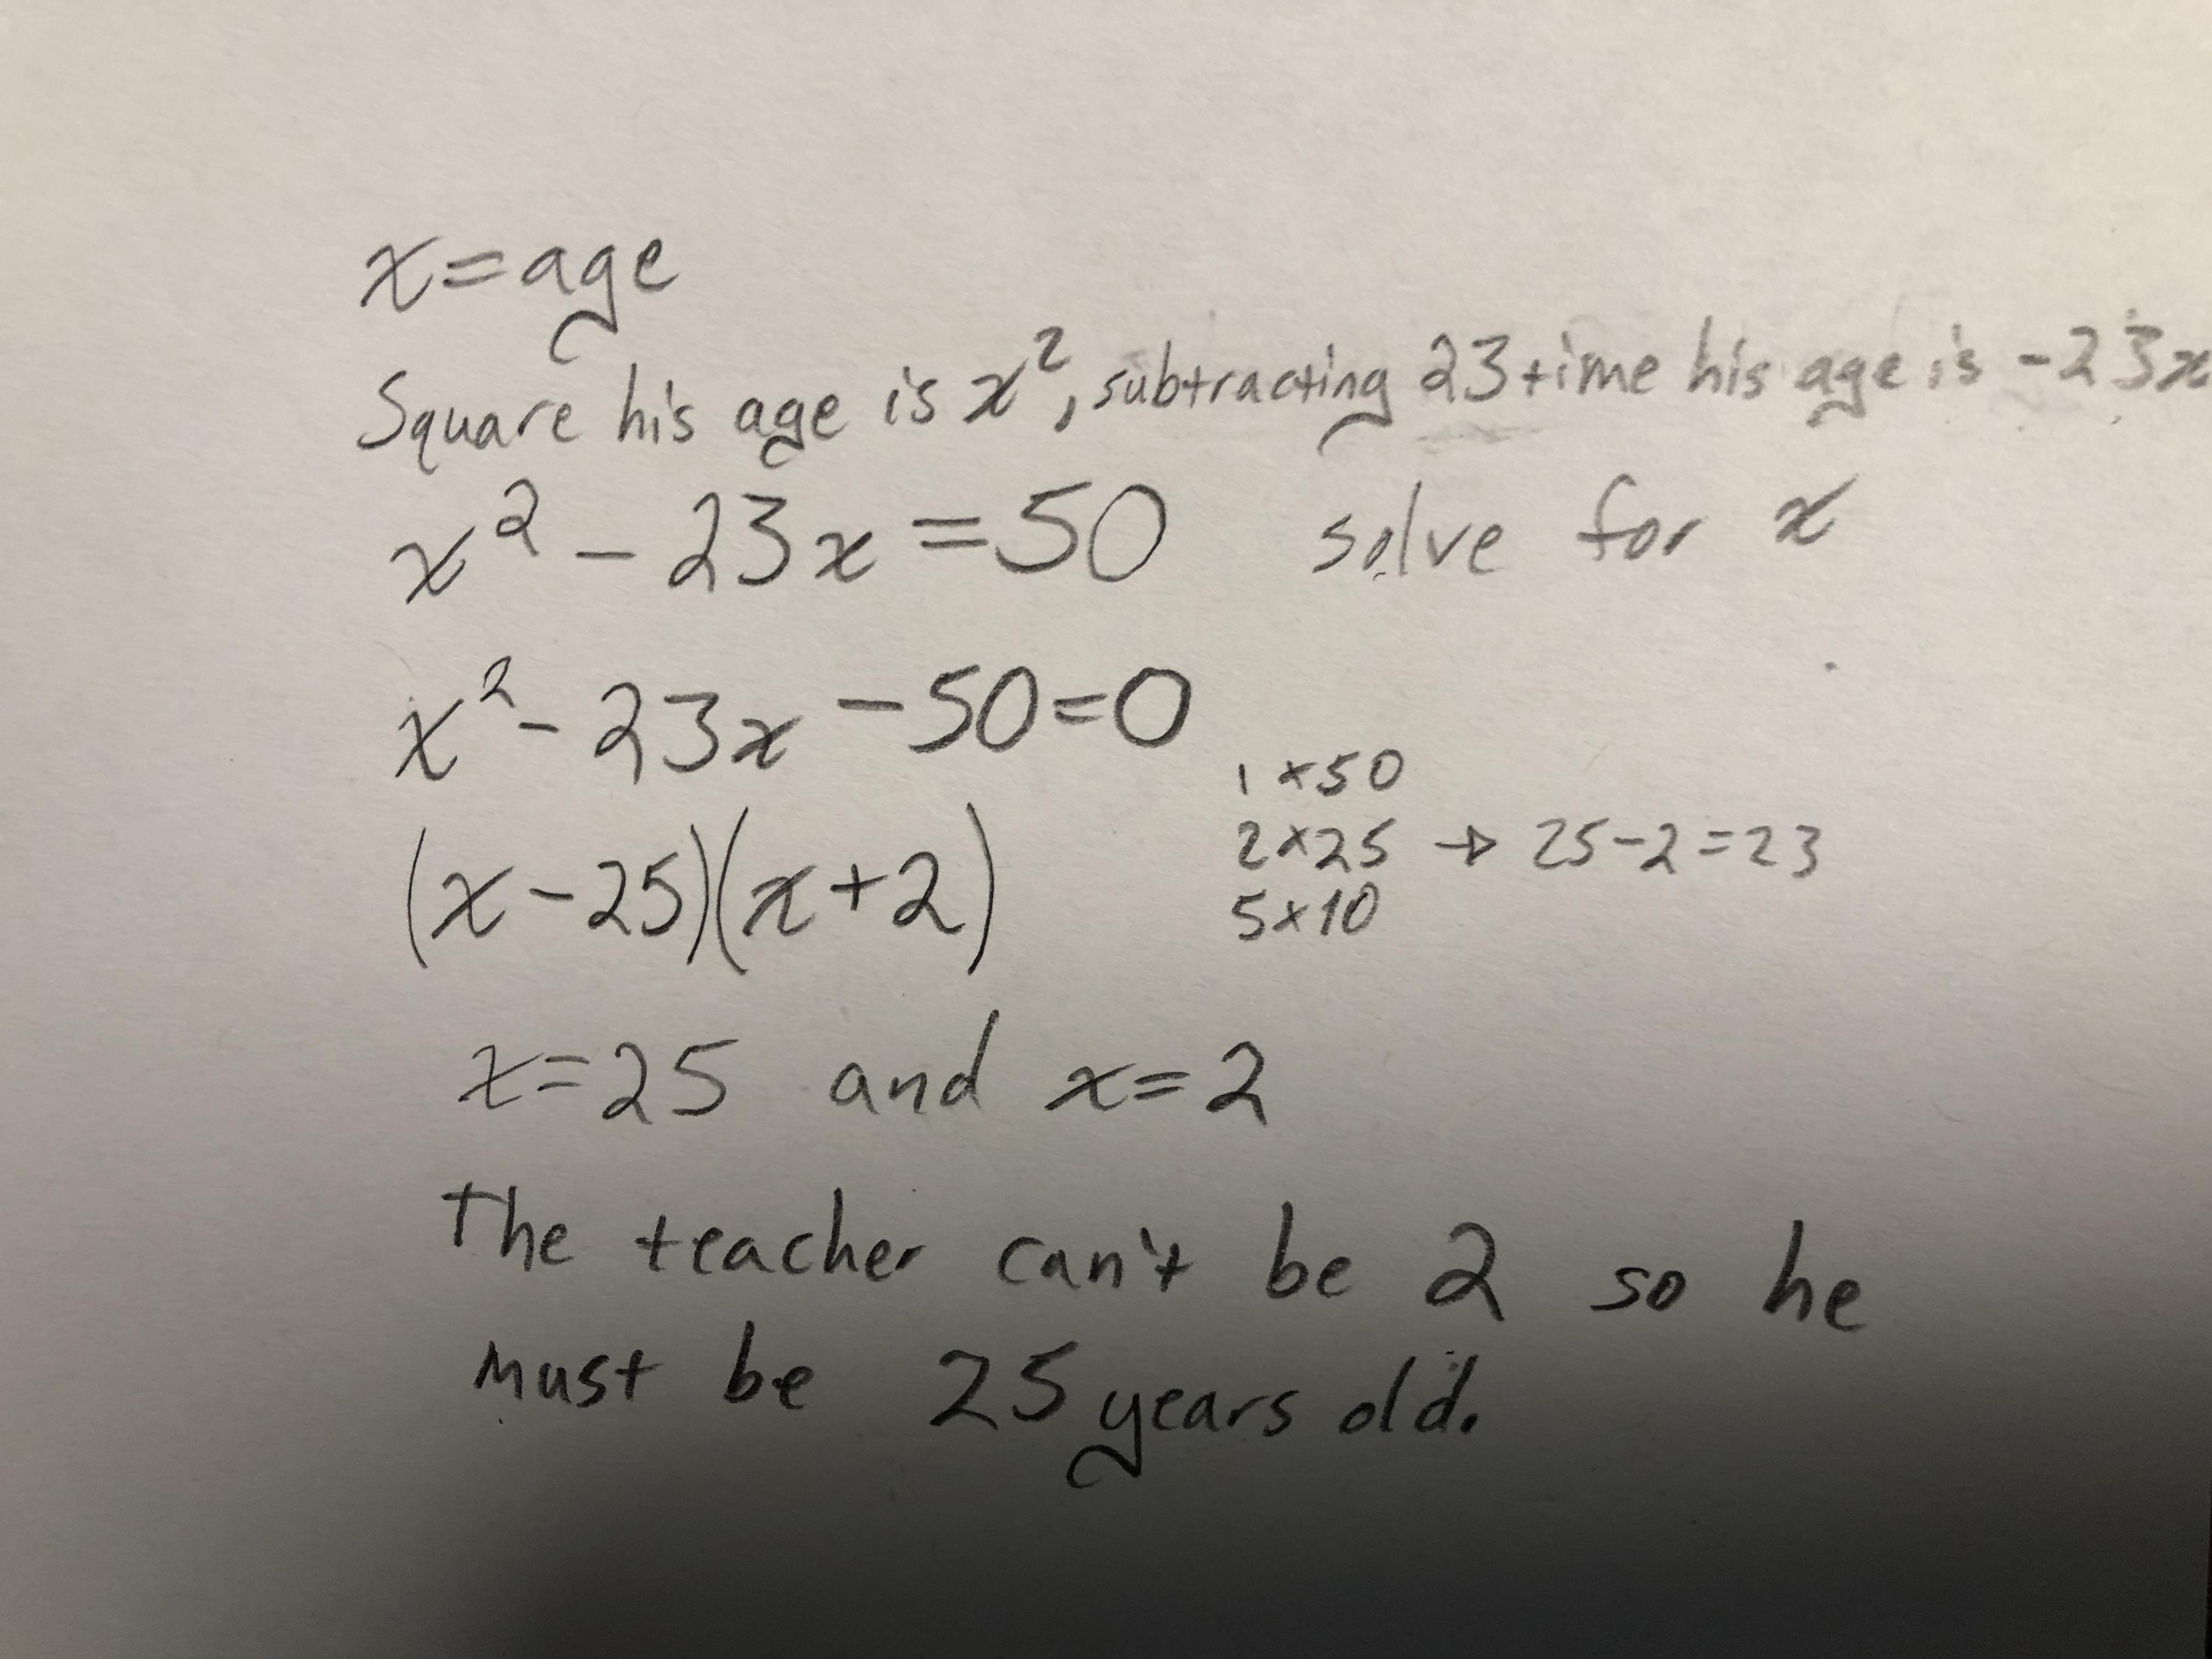 x=age
Square his age is x², subtracting 23 time his age is -23x
x² - 23x = 50 solve for x
x² - 23x - 50=0
1 x 50
(x - 25)(x + 2) 2 x 25 → 25-2=23
5 x 10
x=25 and x=2
The teacher can't be 2 so he
must be 25 years old.